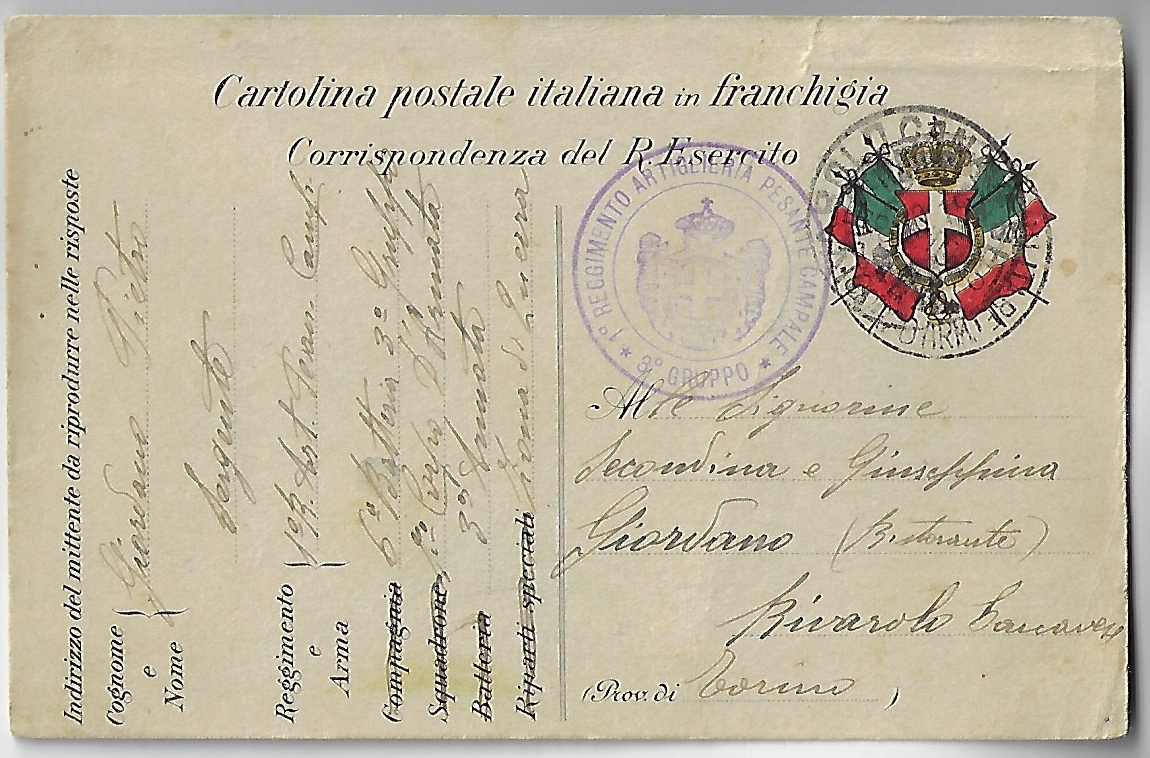 Cartolina postale italiana in franchigia
Corrispondenza del R. Esercito
1° REGGIMENTO ARTIGLIERIA PESANTE CAMPALE
★ 3° GRUPPO ★
Alle Signorine
Secondina e Giuseppina
Giordano (Ristorante)
Rivarolo Canavese
(Prov. di Torino)
Indirizzo del mittente da riprodurre nelle risposte
Cognome e Nome Giordano Pietro
Sergente
Reggimento e Arma 1° R. Art. Pesan. Camp.
Compagnia 6° Batteria 3° Gruppo
Squadrone Corpo D'Armata
Batteria 3° Armata
Riparti speciali Zona di Guerra